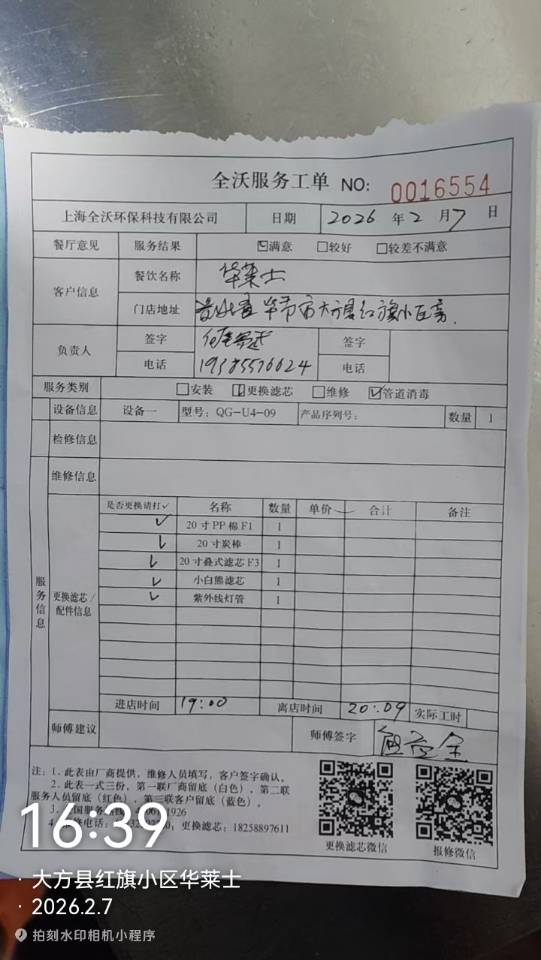 全沃服务工单 NO: 0016554
上海全沃环保科技有限公司 日期 2026 年 2 月 7 日
餐厅意见 服务结果 ☑满意 □较好 □较差不满意
客户信息 餐饮名称 华莱士
门店地址 毕节市大方县红旗小区
负责人 签字 签字
电话 电话
服务类别 □安装 ☑更换滤芯 □维修 ☑管道消毒
设备信息 设备一 型号: QG-U4-09 产品序列号: 数量 1
检修信息
维修信息
服务信息
更换滤芯/配件信息
是否更换请打✓ 名称 数量 单价 合计 备注
✓ 20寸PP棉F1 1
✓ 20寸炭棒 1
✓ 20寸叠式滤芯F3 1
✓ 小白熊滤芯 1
✓ 紫外线灯管 1
进店时间 19:00 离店时间 20:09 实际工时
师傅建议 师傅签字
注: 1、此表由厂商提供, 维修人员填写, 客户签字确认。
2、此表一式三份, 第一联厂商留底(白色), 第二联
服务人员留底(红色), 第三联客户留底(蓝色)。
更换滤芯: 18258897611
更换滤芯微信 报修微信
16:39
大方县红旗小区华莱士
2026.2.7
拍刻水印相机小程序